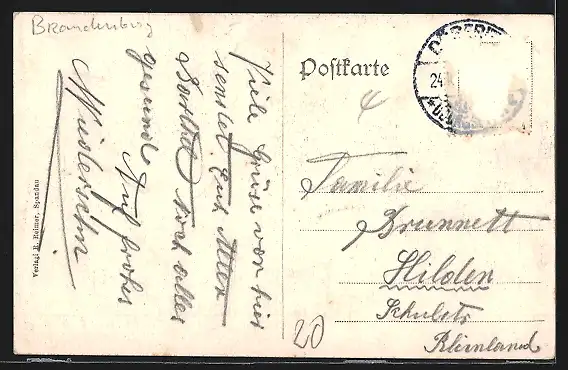 Brandenburg
Viele Grüße von hier
sendet Euch Allen
noch alles
gesund
Auf frohes
Wiedersehn
Verlag: H. Reimer, Spandau
Postkarte
DÖBERITZ
24.
4
Familie
Brunnett
Hilden
Schulstr
Rheinland
20